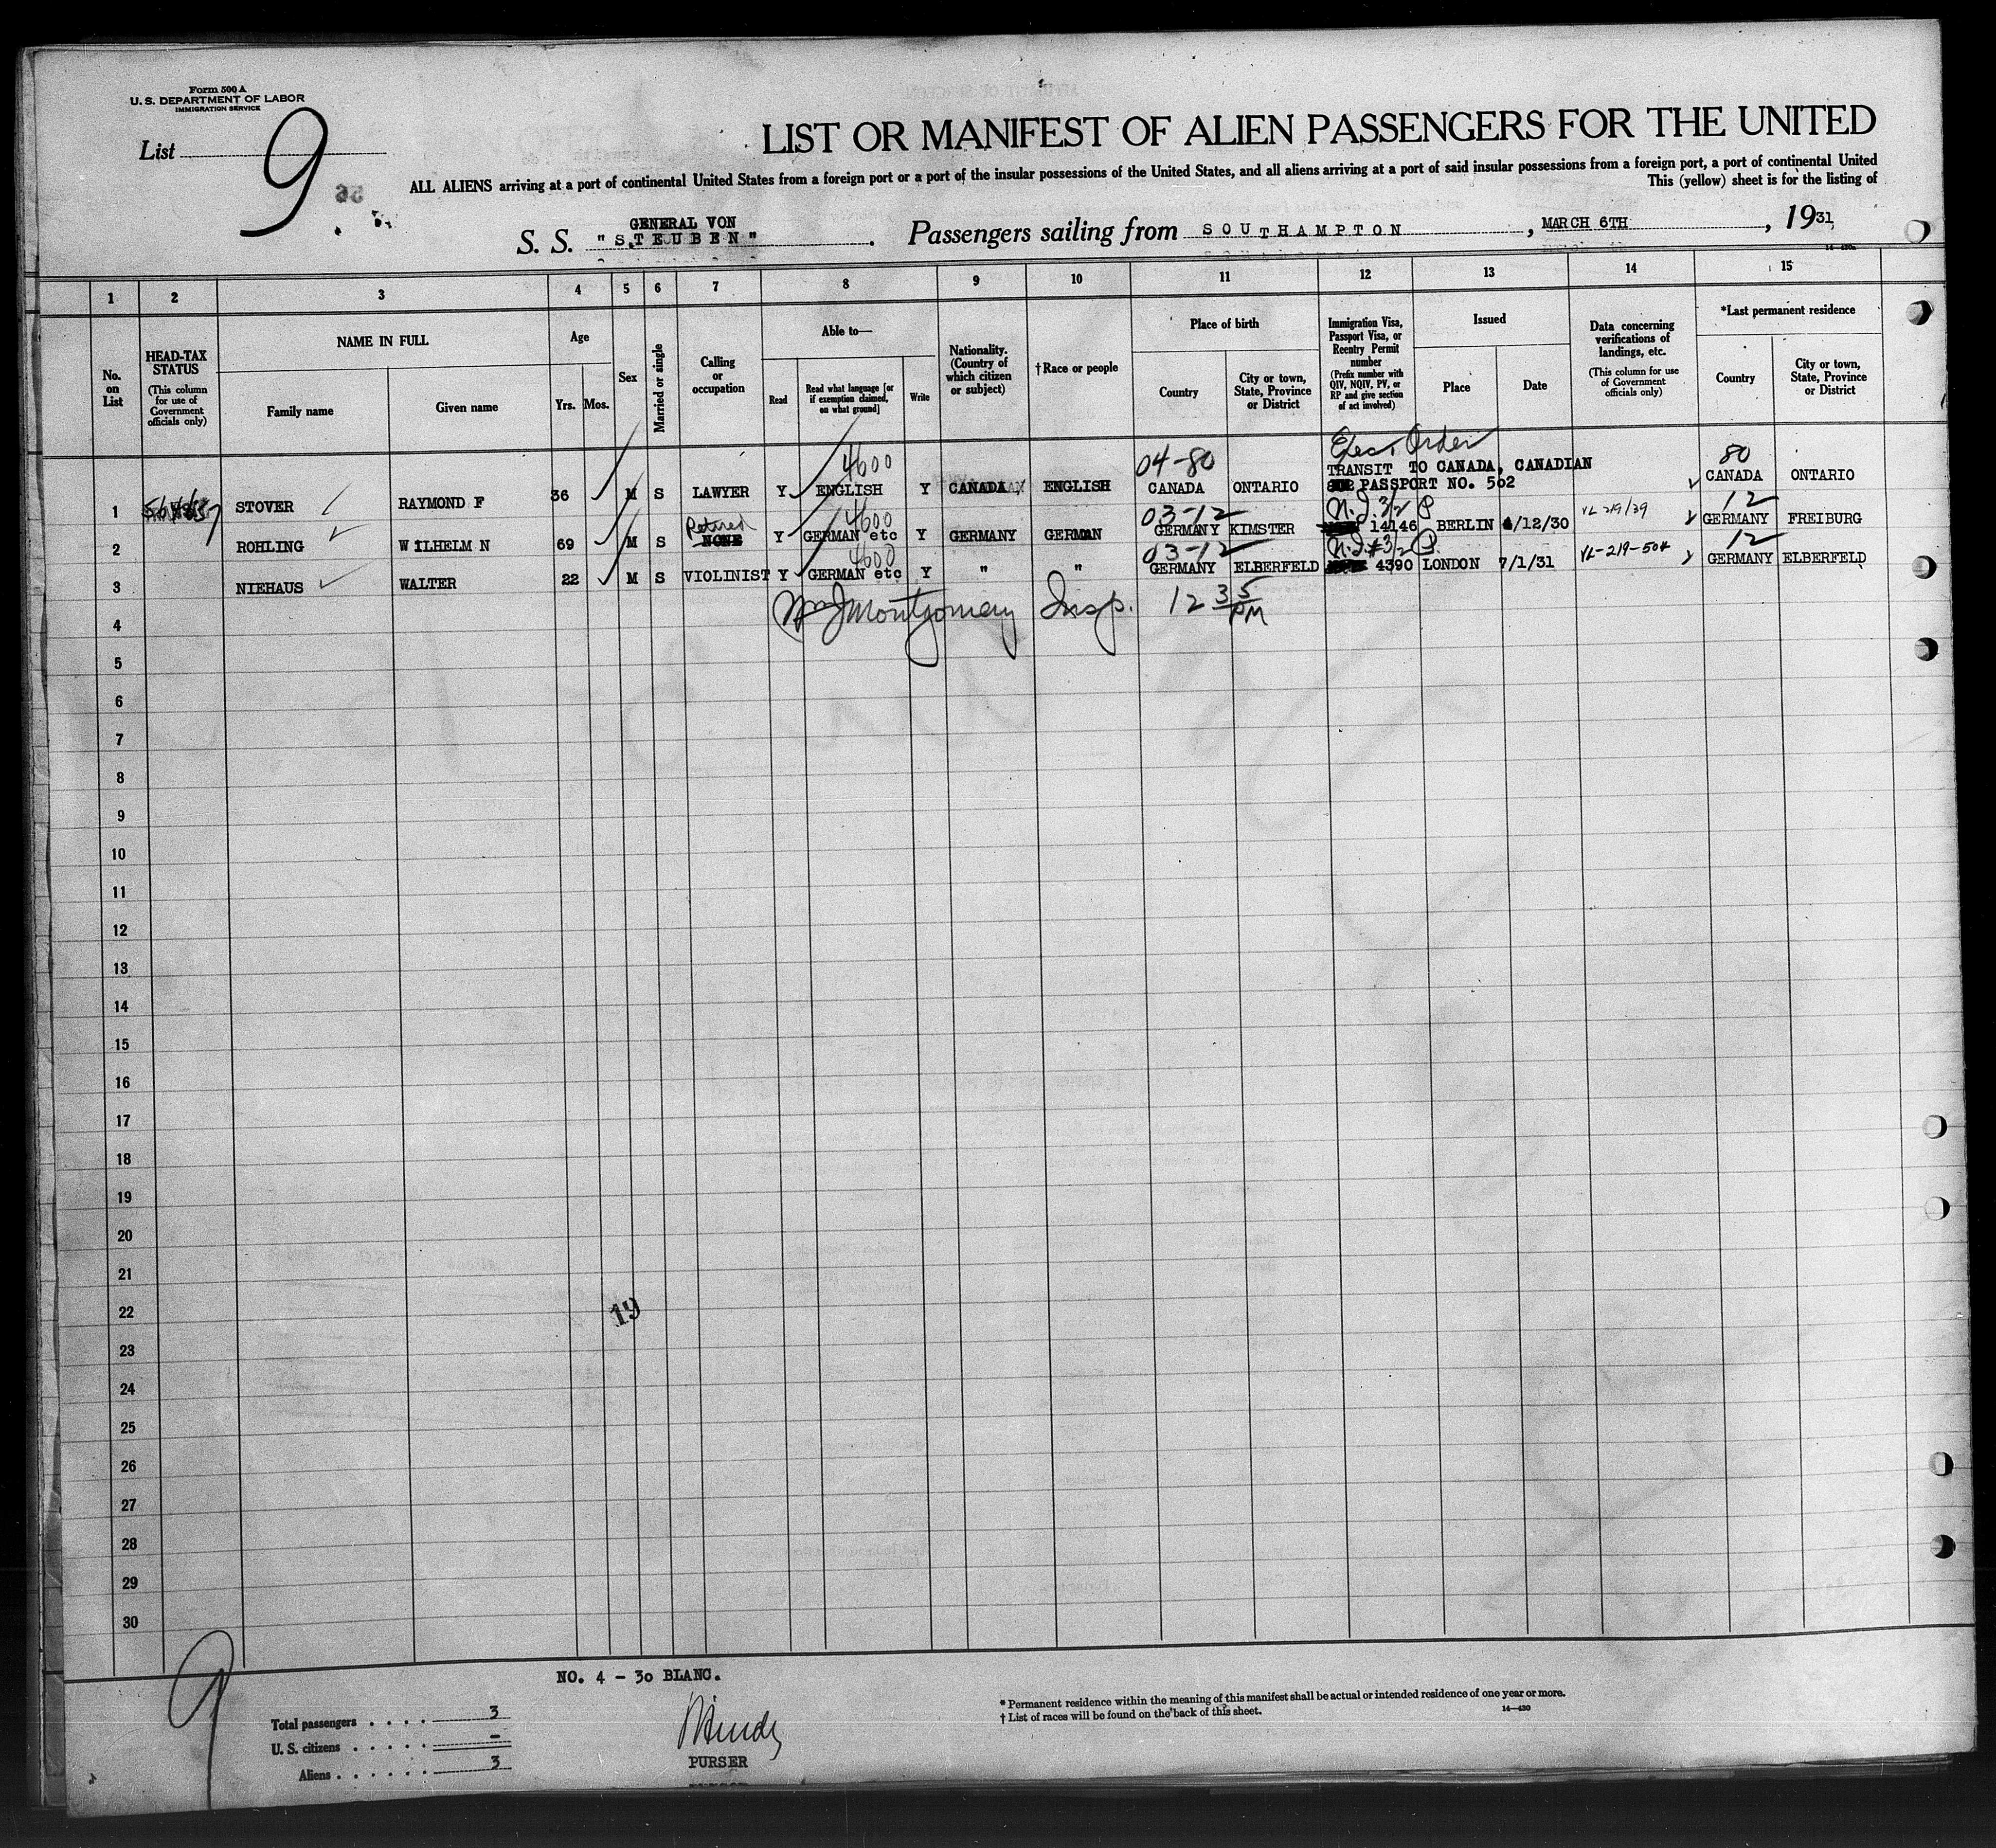 Form 500 A
U. S. DEPARTMENT OF LABOR
IMMIGRATION SERVICE
List 9
LIST OR MANIFEST OF ALIEN PASSENGERS FOR THE UNITED
ALL ALIENS arriving at a port of continental United States from a foreign port or a port of the insular possessions of the United States, and all aliens arriving at a port of said insular possessions from a foreign port, a port of continental United
This (yellow) sheet is for the listing of
S. S. GENERAL VON "STEUBEN". Passengers sailing from SOUTHAMPTON, MARCH 6TH, 1931
1 2 3 4 5 6 7 8 9 10 11 12 13 14 15
No. on List
HEAD-TAX STATUS
(This column for use of Government officials only)
NAME IN FULL
Family name
Given name
Age
Yrs. Mos.
Sex
Married or single
Calling or occupation
Able to—
Read
Read what language [or if exemption claimed, on what ground]
Write
Nationality. (Country of which citizen or subject)
† Race or people
Place of birth
Country
City or town, State, Province or District
Immigration Visa, Passport Visa, or Reentry Permit number
(Prefix number with QIV, NQIV, PV, or RP and give section of act involved)
Issued
Place
Date
Data concerning verifications of landings, etc.
(This column for use of Government officials only)
*Last permanent residence
Country
City or town, State, Province or District
4600 04-80 Exec. Order 80
1 STOVER RAYMOND F 36 M S LAWYER Y ENGLISH Y CANADA ENGLISH CANADA ONTARIO TRANSIT TO CANADA, CANADIAN PASSPORT NO. 502 CANADA ONTARIO
Retired 4600 03-12 12
2 ROHLING WILHELM N 69 M S NONE Y GERMAN etc Y GERMANY GERMAN GERMANY KIMSTER 14146 BERLIN 4/12/30 VL-219/39 GERMANY FREIBURG
4600 03-12 12
3 NIEHAUS WALTER 22 M S VIOLINIST Y GERMAN etc Y " " GERMANY ELBERFELD 4390 LONDON 7/1/31 VL-219-504 GERMANY ELBERFELD
4 Wm J Montgomery Insp. 12 35 PM
5
6
7
8
9
10
11
12
13
14
15
16
17
18
19
20
21
22
19
23
24
25
26
27
28
29
30
9
NO. 4 - 30 BLANC.
Total passengers . . . . 3
U. S. citizens . . . . . –
Aliens . . . . . . 3
PURSER
* Permanent residence within the meaning of this manifest shall be actual or intended residence of one year or more.
† List of races will be found on the back of this sheet.
14—430